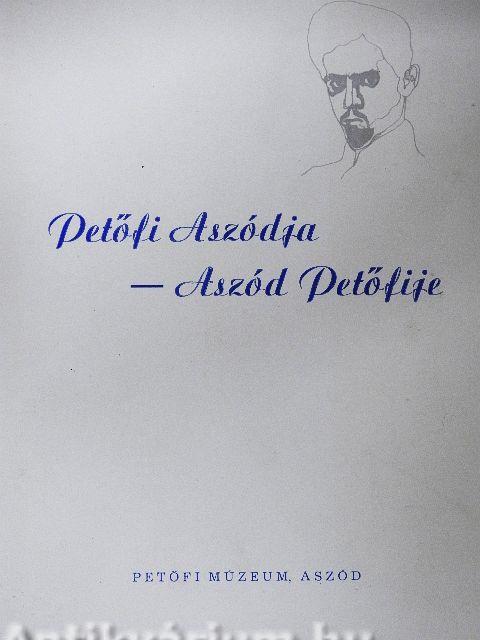 Petőfi Aszódja
— Aszód Petőfije
PETŐFI MÚZEUM, ASZÓD
Antikvárium.hu